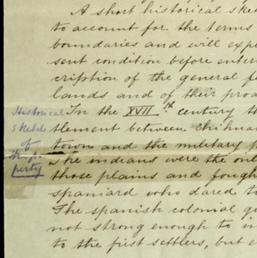 A short historical sket
to account for the terms
boundaries and will exp
sent condition before enter
cription of the general fe
lands and of their prod
Historical
Sketch
of
perty
In the XVII th century th
tlement between Chihua
town and the military p
the indians were the onl
those plains and fough
spaniard who dared to
The spanish colonial g
not strong enough to
to the first settlers, but